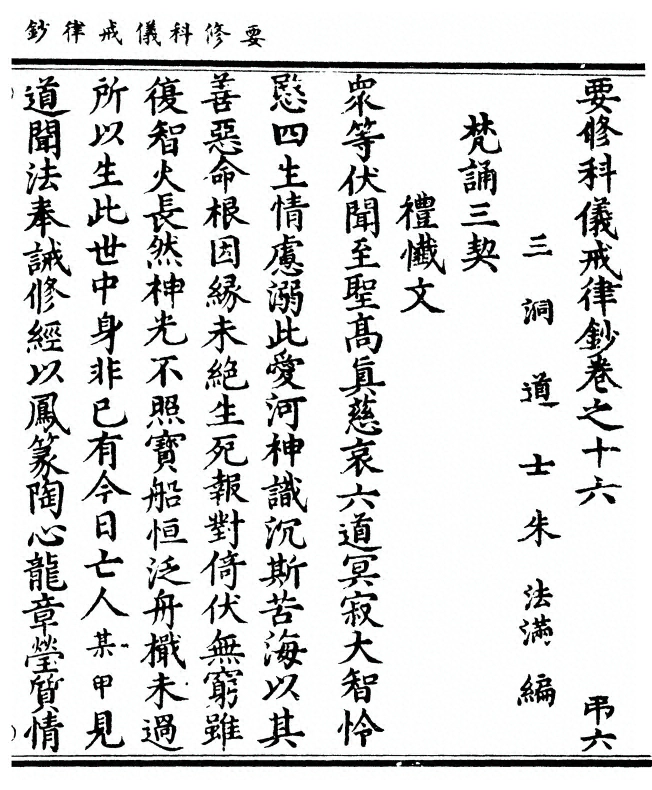 要修科儀戒律鈔
要修科儀戒律鈔卷之十六
弔六
三洞道士朱法滿編
梵誦三契
禮懺文
衆等伏聞至聖髙眞慈哀六道冥寂大智怜
愍四生情慮溺此愛河神識沉斯苦海以其
善惡命根因縁未絶生死報對倚伏無窮雖
復智火長然神光不照寶船恒泛舟檝未過
所以生此世中身非已有今日亡人某甲見
道聞法奉誡修經以鳳篆陶心龍章瑩質情